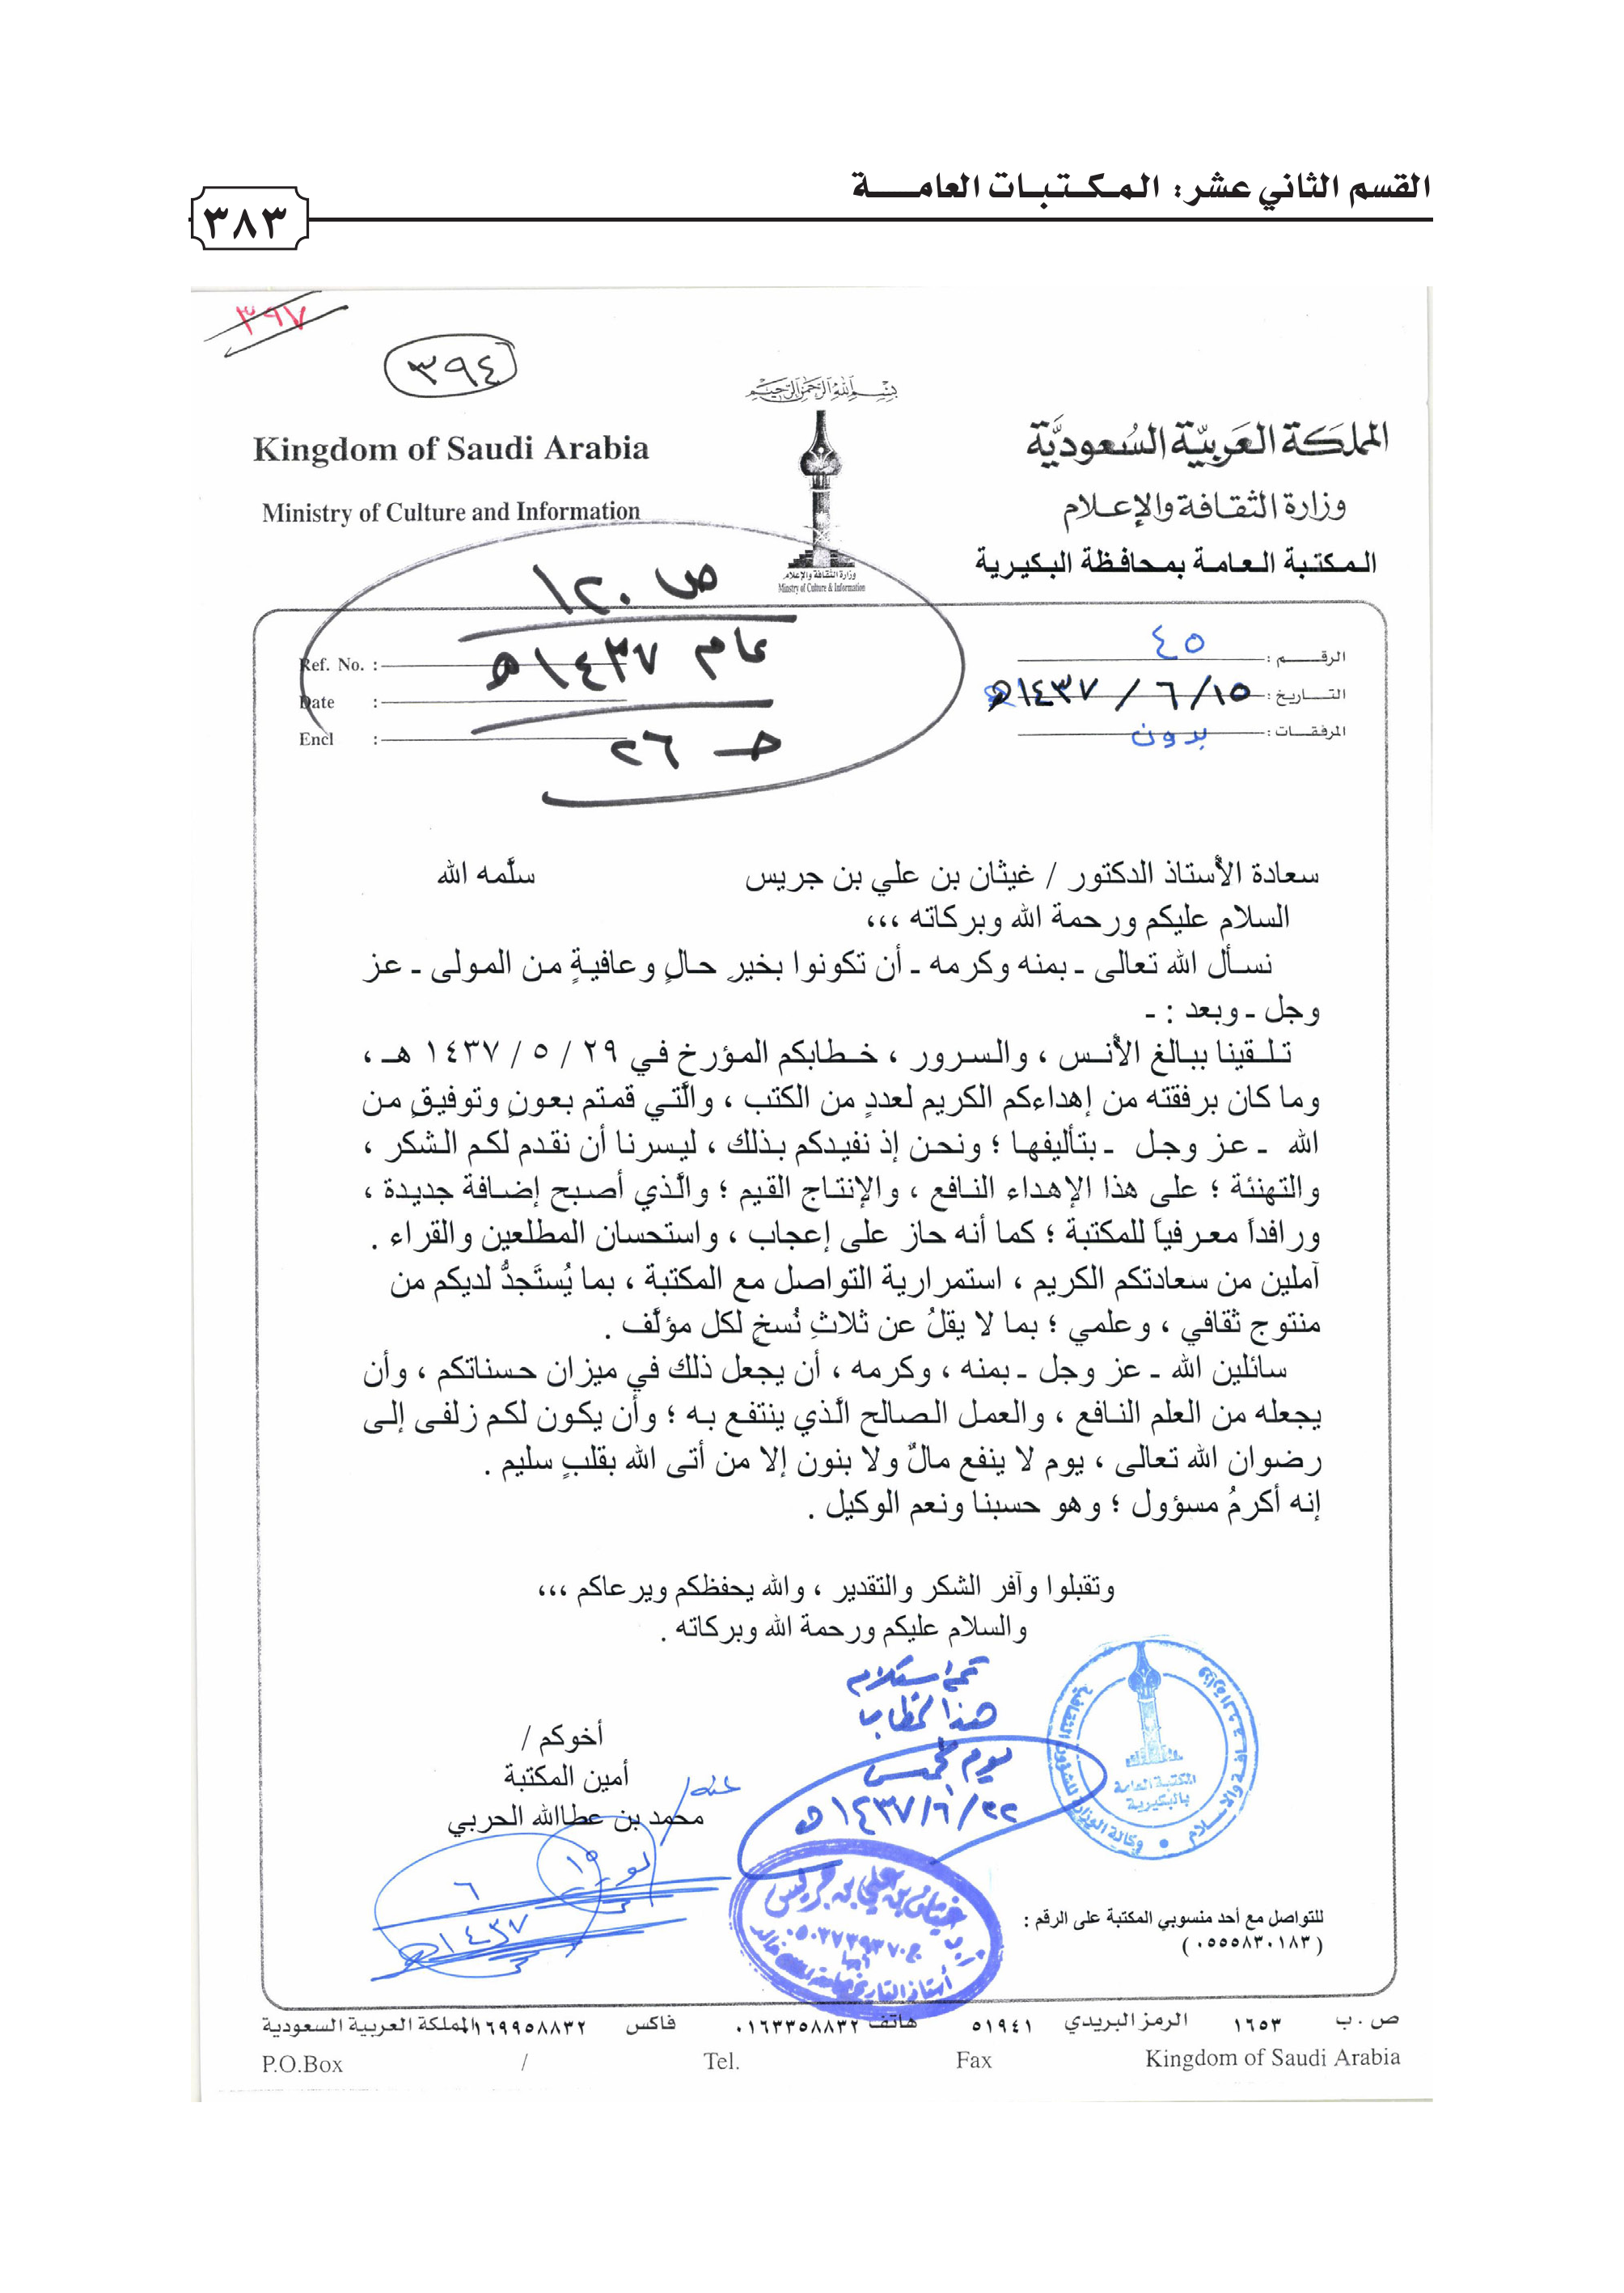 القسم الثاني عشر: المكتبات العامة
٣٨٣
٣٩٧
٣٩٤
بسم الله الرحمن الرحيم
المملكة العربية السعودية
Kingdom of Saudi Arabia
وزارة الثقافة والإعلام
Ministry of Culture and Information
المكتبة العامة بمحافظة البكيرية
وزارة الثقافة والإعلام
Ministry of Culture & Information
ص ١٢٠
عام ١٤٣٧هـ
حـ ٢٦
الرقم : ٤٥
التاريخ : ١٥ / ٦ / ١٤٣٧هـ
المرفقات : بدون
Ref. No. :
Date :
Encl :
سعادة الأستاذ الدكتور / غيثان بن علي بن جريس سلَّمه الله
السلام عليكم ورحمة الله وبركاته ،،،
نسأل الله تعالى ـ بمنه وكرمه ـ أن تكونوا بخيرِ حالٍ وعافيةٍ من المولى ـ عز
وجل ـ وبعد : ـ
تلقينا ببالغ الأنس ، والسرور ، خطابكم المؤرخ في ٢٩ / ٥ / ١٤٣٧ هـ ،
وما كان برفقته من إهداءكم الكريم لعددٍ من الكتب ، والَّتي قمتم بعونٍ وتوفيقٍ من
الله ـ عز وجل ـ بتأليفها ؛ ونحن إذ نفيدكم بذلك ، ليسرنا أن نقدم لكم الشكر ،
والتهنئة ؛ على هذا الإهداء النافع ، والإنتاج القيم ؛ والَّذي أصبح إضافة جديدة ،
ورافداً معرفياً للمكتبة ؛ كما أنه حاز على إعجاب ، واستحسان المطلعين والقراء .
آملين من سعادتكم الكريم ، استمرارية التواصل مع المكتبة ، بما يُستَجدُّ لديكم من
منتوج ثقافي ، وعلمي ؛ بما لا يقلُ عن ثلاثِ نُسخٍ لكل مؤلَّف .
سائلين الله ـ عز وجل ـ بمنه ، وكرمه ، أن يجعل ذلك في ميزان حسناتكم ، وأن
يجعله من العلم النافع ، والعمل الصالح الَّذي ينتفع به ؛ وأن يكون لكم زلفى إلى
رضوان الله تعالى ، يوم لا ينفع مالٌ ولا بنون إلا من أتى الله بقلبٍ سليم .
إنه أكرمُ مسؤول ؛ وهو حسبنا ونعم الوكيل .
وتقبلوا وآفر الشكر والتقدير ، والله يحفظكم ويرعاكم ،،،
والسلام عليكم ورحمة الله وبركاته .
تم استلام
هذا الخطاب
يوم الخميس
٢٢/٦/١٤٣٧هـ
أخوكم /
أمين المكتبة
عنه/
محمد بن عطاالله الحربي
١٥
٦
١٤٣٧هـ
وزارة الثقافة والإعلام
وكالة الوزارة للشؤون الثقافية
المكتبة العامة
بالبكيرية
غيثان بن علي بن جريس
للتواصل مع أحد منسوبي المكتبة على الرقم :
( ٠٥٥٥٨٣٠١٨٣ )
ص . ب ١٦٥٣ الرمز البريدي ٥١٩٤١ هاتف ٠١٦٣٣٥٨٨٣٢ فاكس ١٦٩٩٥٨٨٣٢ المملكة العربية السعودية
P.O.Box / Tel. Fax Kingdom of Saudi Arabia